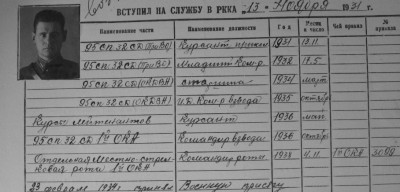 ВСТУПИЛ НА СЛУЖБУ В РККА "13" Ноября 1931 г.
Наименование части Наименование должности Год Месяц и число Чей приказ № приказа
95 СП 32 СД (ПриВО) Курсант 1931 13.11
95 СП. 32 СД (ПриВО) Младший Ком-р 1932 18.5
95 СП. 32 СД (ОКДВА) старшина 1934 март
95 СП. 32 СД (ОКДВА) И.Д. Ком-р взвода 1935 октябрь
Курсы лейтенантов Курсант 1936
95 СП 32 СД 1й ОКА Командир взвода 1936 октябрь
Отдельная местно-стрел-
ковая рота 1й ОКА Командир роты 1938 4.11 1й ОКА
23 февраля 1939 г. принял Военную присягу